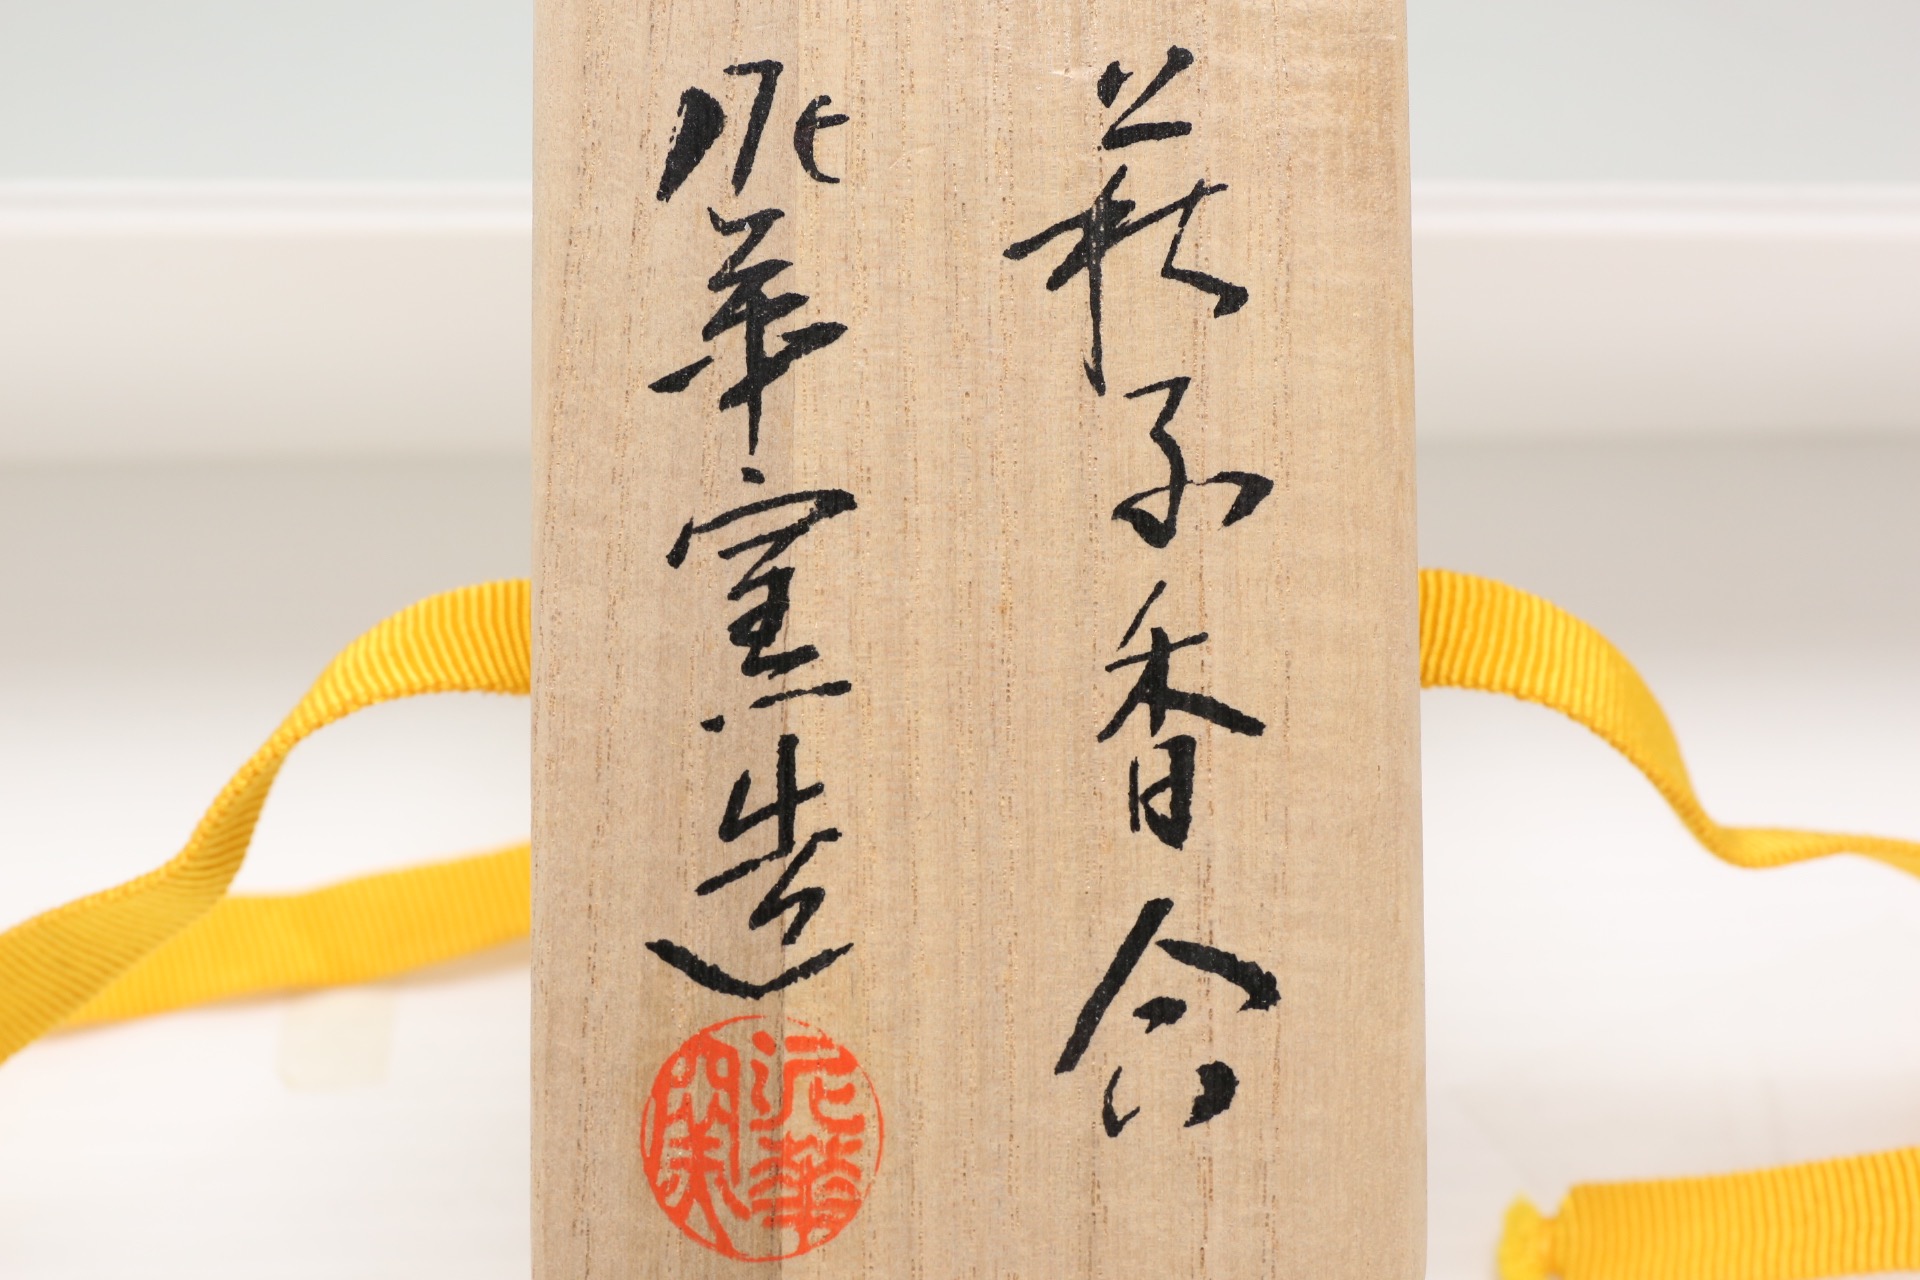 子香合
泥華窯造
泥華